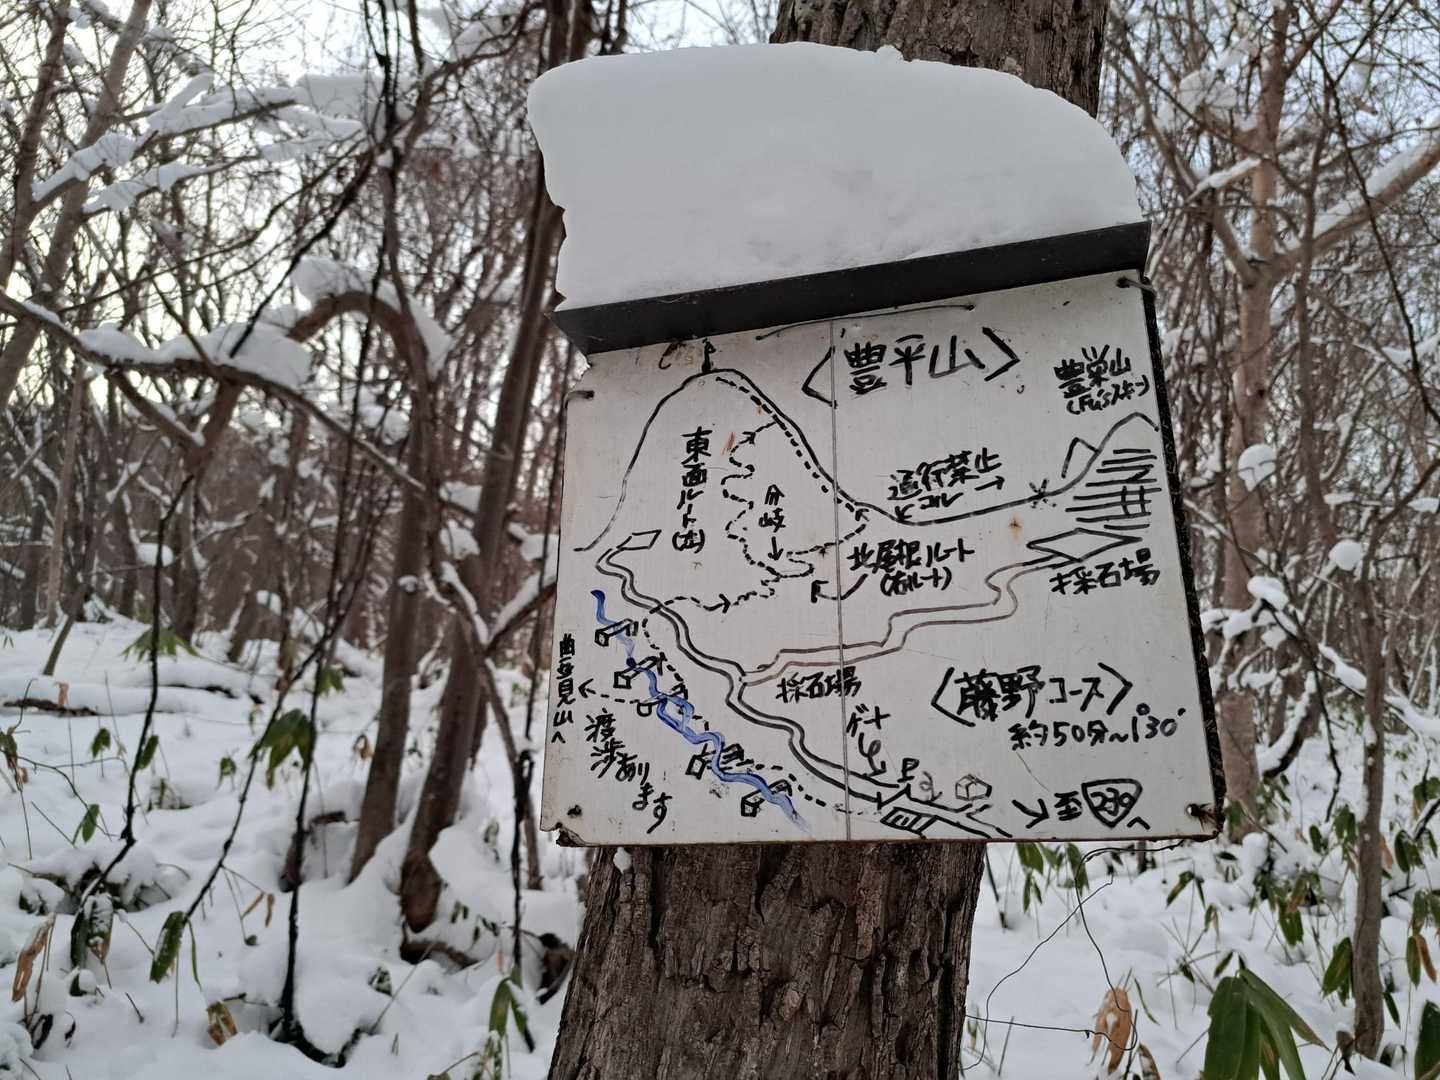 〈豊平山〉
豊栄山
(Fu'sスキー)
東面
ルート
(左)
分岐
通行禁止
コル
北尾根ルート
(右ルート)
採石場
採石場
〈藤野コース〉
約50分~1°30'
ゲート
P
至
焼山へ
渡渉あります